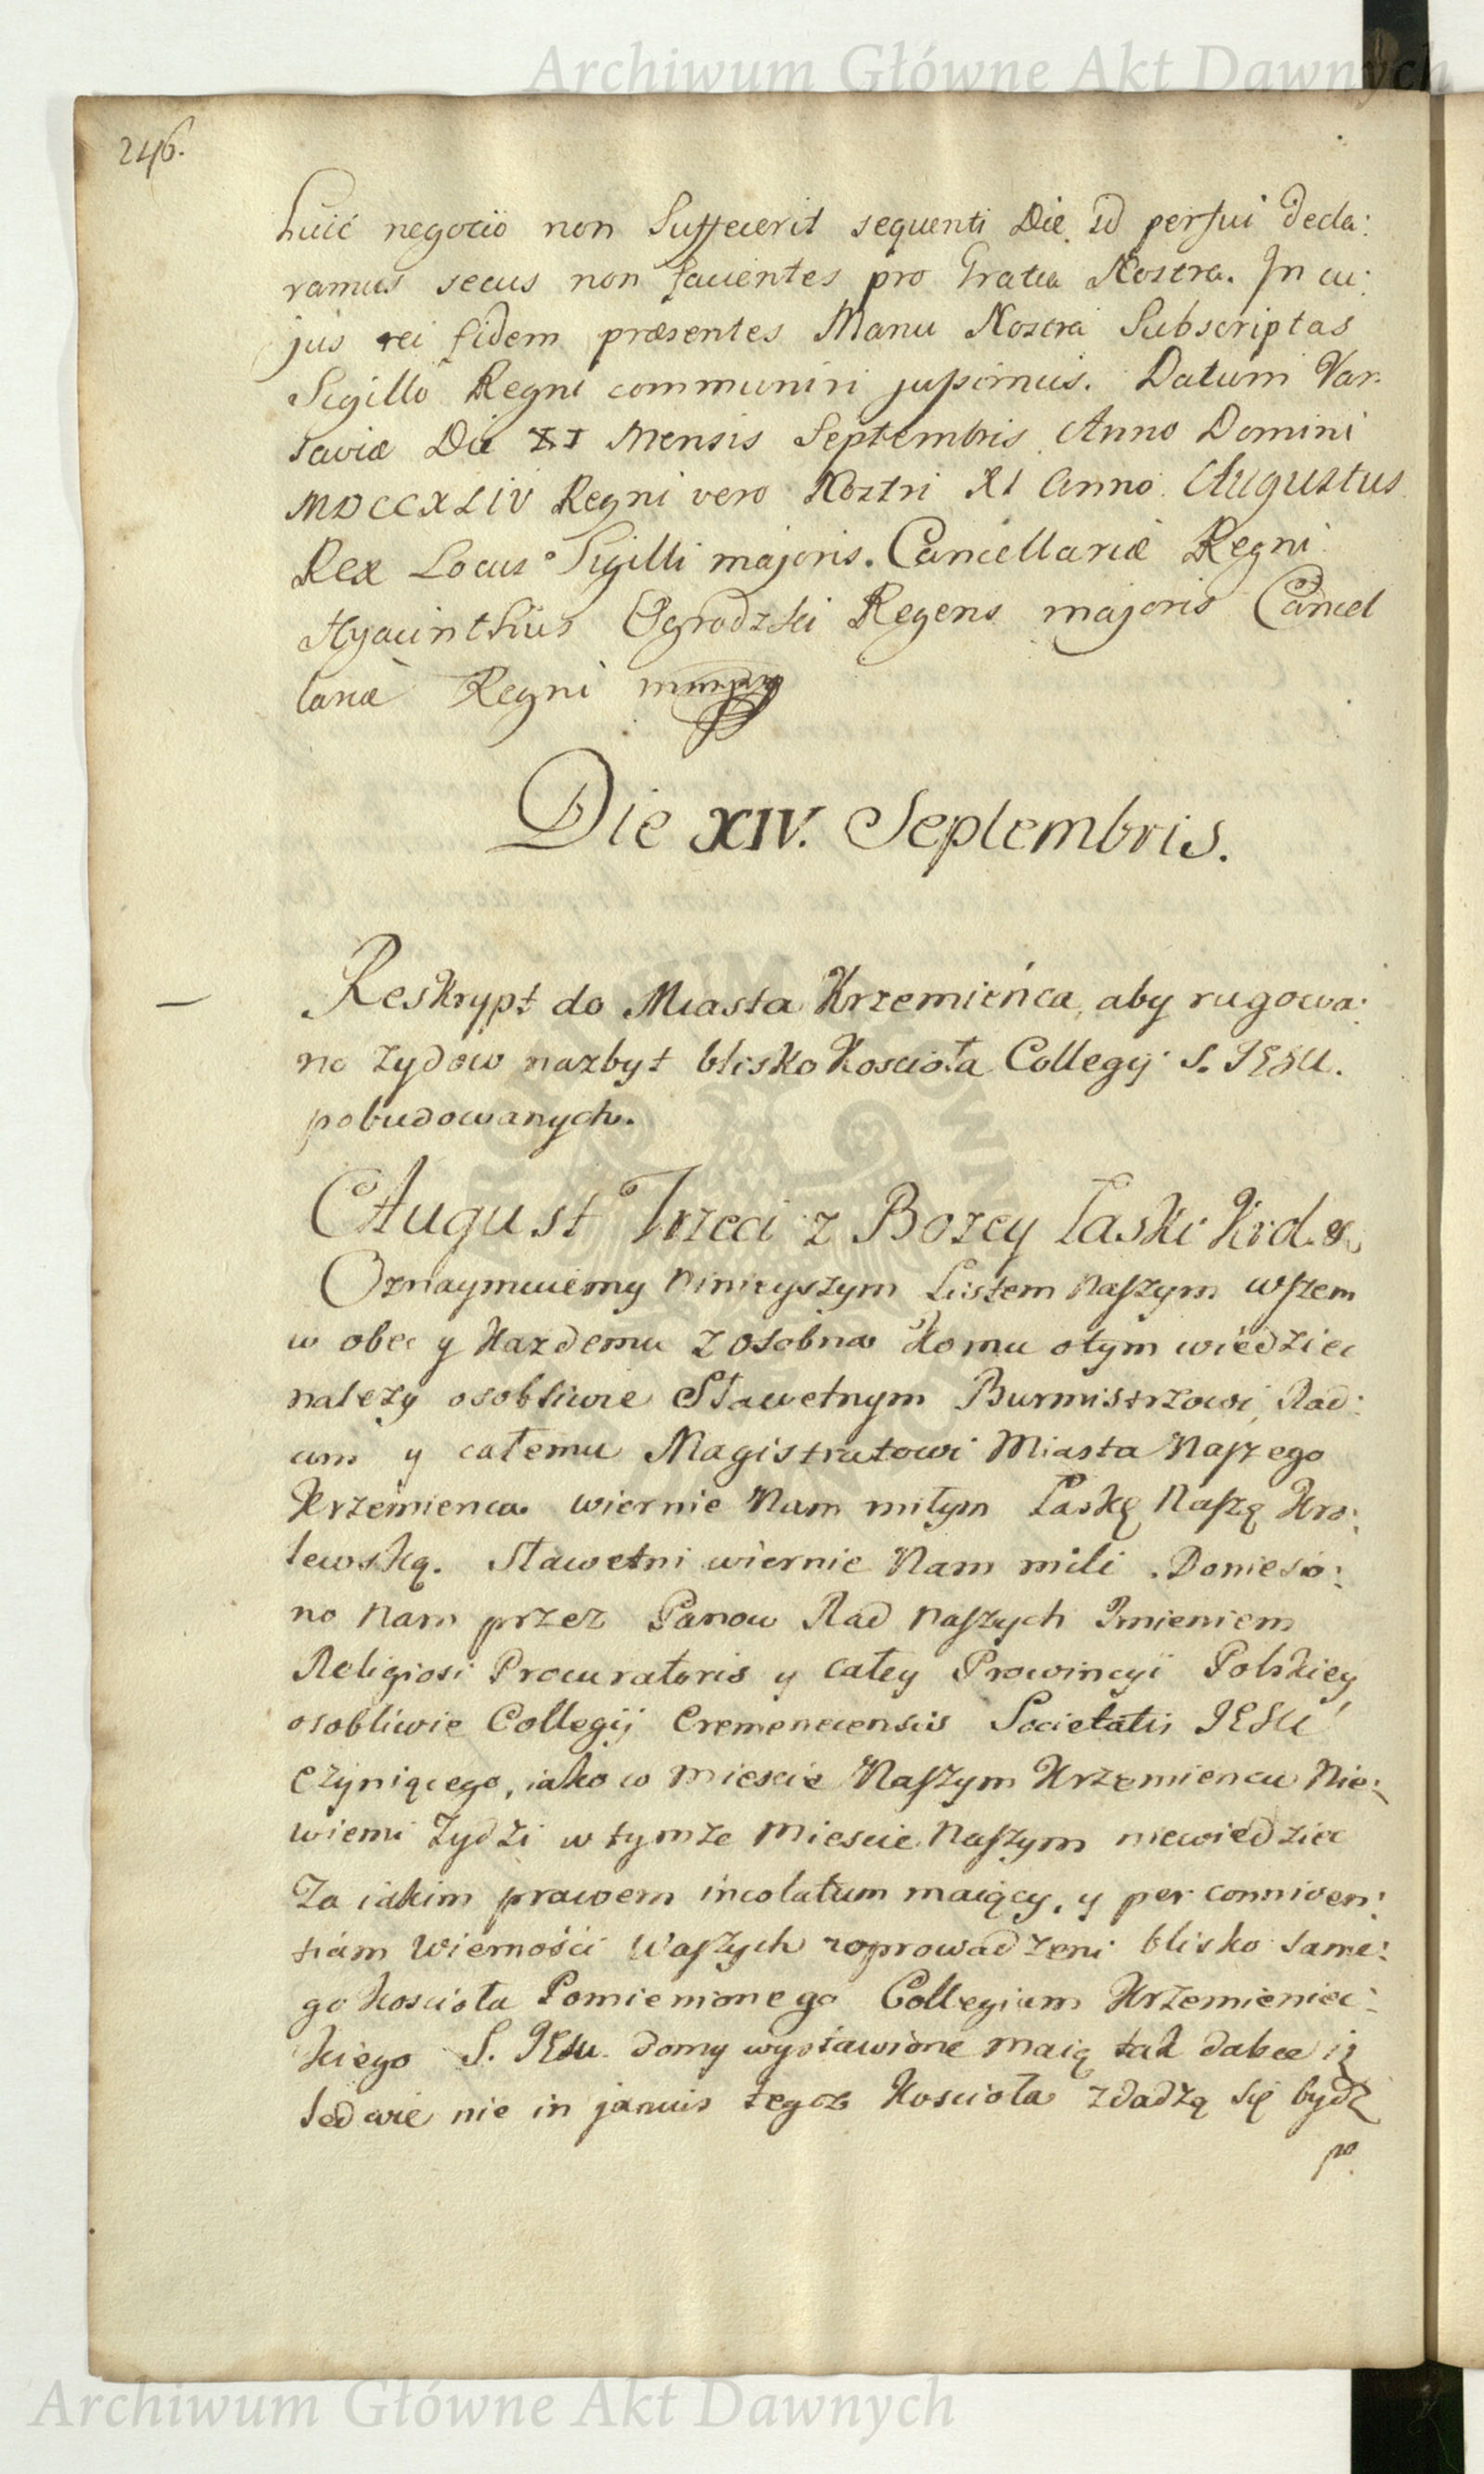 Archiwum Główne Akt Dawnych
246.
huic negotio non Suffecerit sequenti Die id perfui decla:
ramus secus non facientes pro Gratia Nostra. In cu:
jus rei fidem præsentes Manu Nostra Subscriptas
Sigillo Regni communiri jussimus. Datum Var:
saviæ Die XI Mensis Septembris Anno Domini
MDCCXLIV Regni vero Nostri XI Anno. Augustus
Rex Locus Sigilli majoris. Cancellariæ Regni
Hyacinthus Ogrodzki Regens majoris Cancel
lariæ Regni mmpp
Die XIV. Septembris.
Reskrypt do Miasta Krzemieńca, aby rugowa:
no Zydow nazbyt blisko Koscioła Collegij S. JESU.
pobudowanych.
August Trzeci z Bozey Łaski Krol. &
Oznaymuiemy ninieyszym Listem Naszym wszem
w obec y Kazdemu z osobna Komu otym wiedziec
nalezy osobliwie Sławetnym Burmistrzowi, Rad:
com y całemu Magistratowi Miasta Naszego
Krzemienca wiernie Nam miłym Łaskę Naszą Kro:
lewską. Sławetni wiernie Nam mili. Doniesio:
no Nam przez Panow Rad Naszych Imieniem
Religiosi Procuratoris y całey Prowincyi Polskiey
osobliwie Collegij Cremenecensis Societatis JESU
czyniącego, iako w Miescie Naszym Krzemiencu Nie:
wierni Zydzi w tymze Miescie Naszym niewiedziec
Za iakim prawem incolatum maiący, y per conniven:
tiam Wierności Waszych wprowadzeni blisko same:
go Kosciola Pomienionego Collegium Krzemieniec:
kiego S. JESU. domy wystawione maią tak dalece iż
ledwie nie in januis tegoz Kosciola zdadzą się bydz
po
Archiwum Główne Akt Dawnych